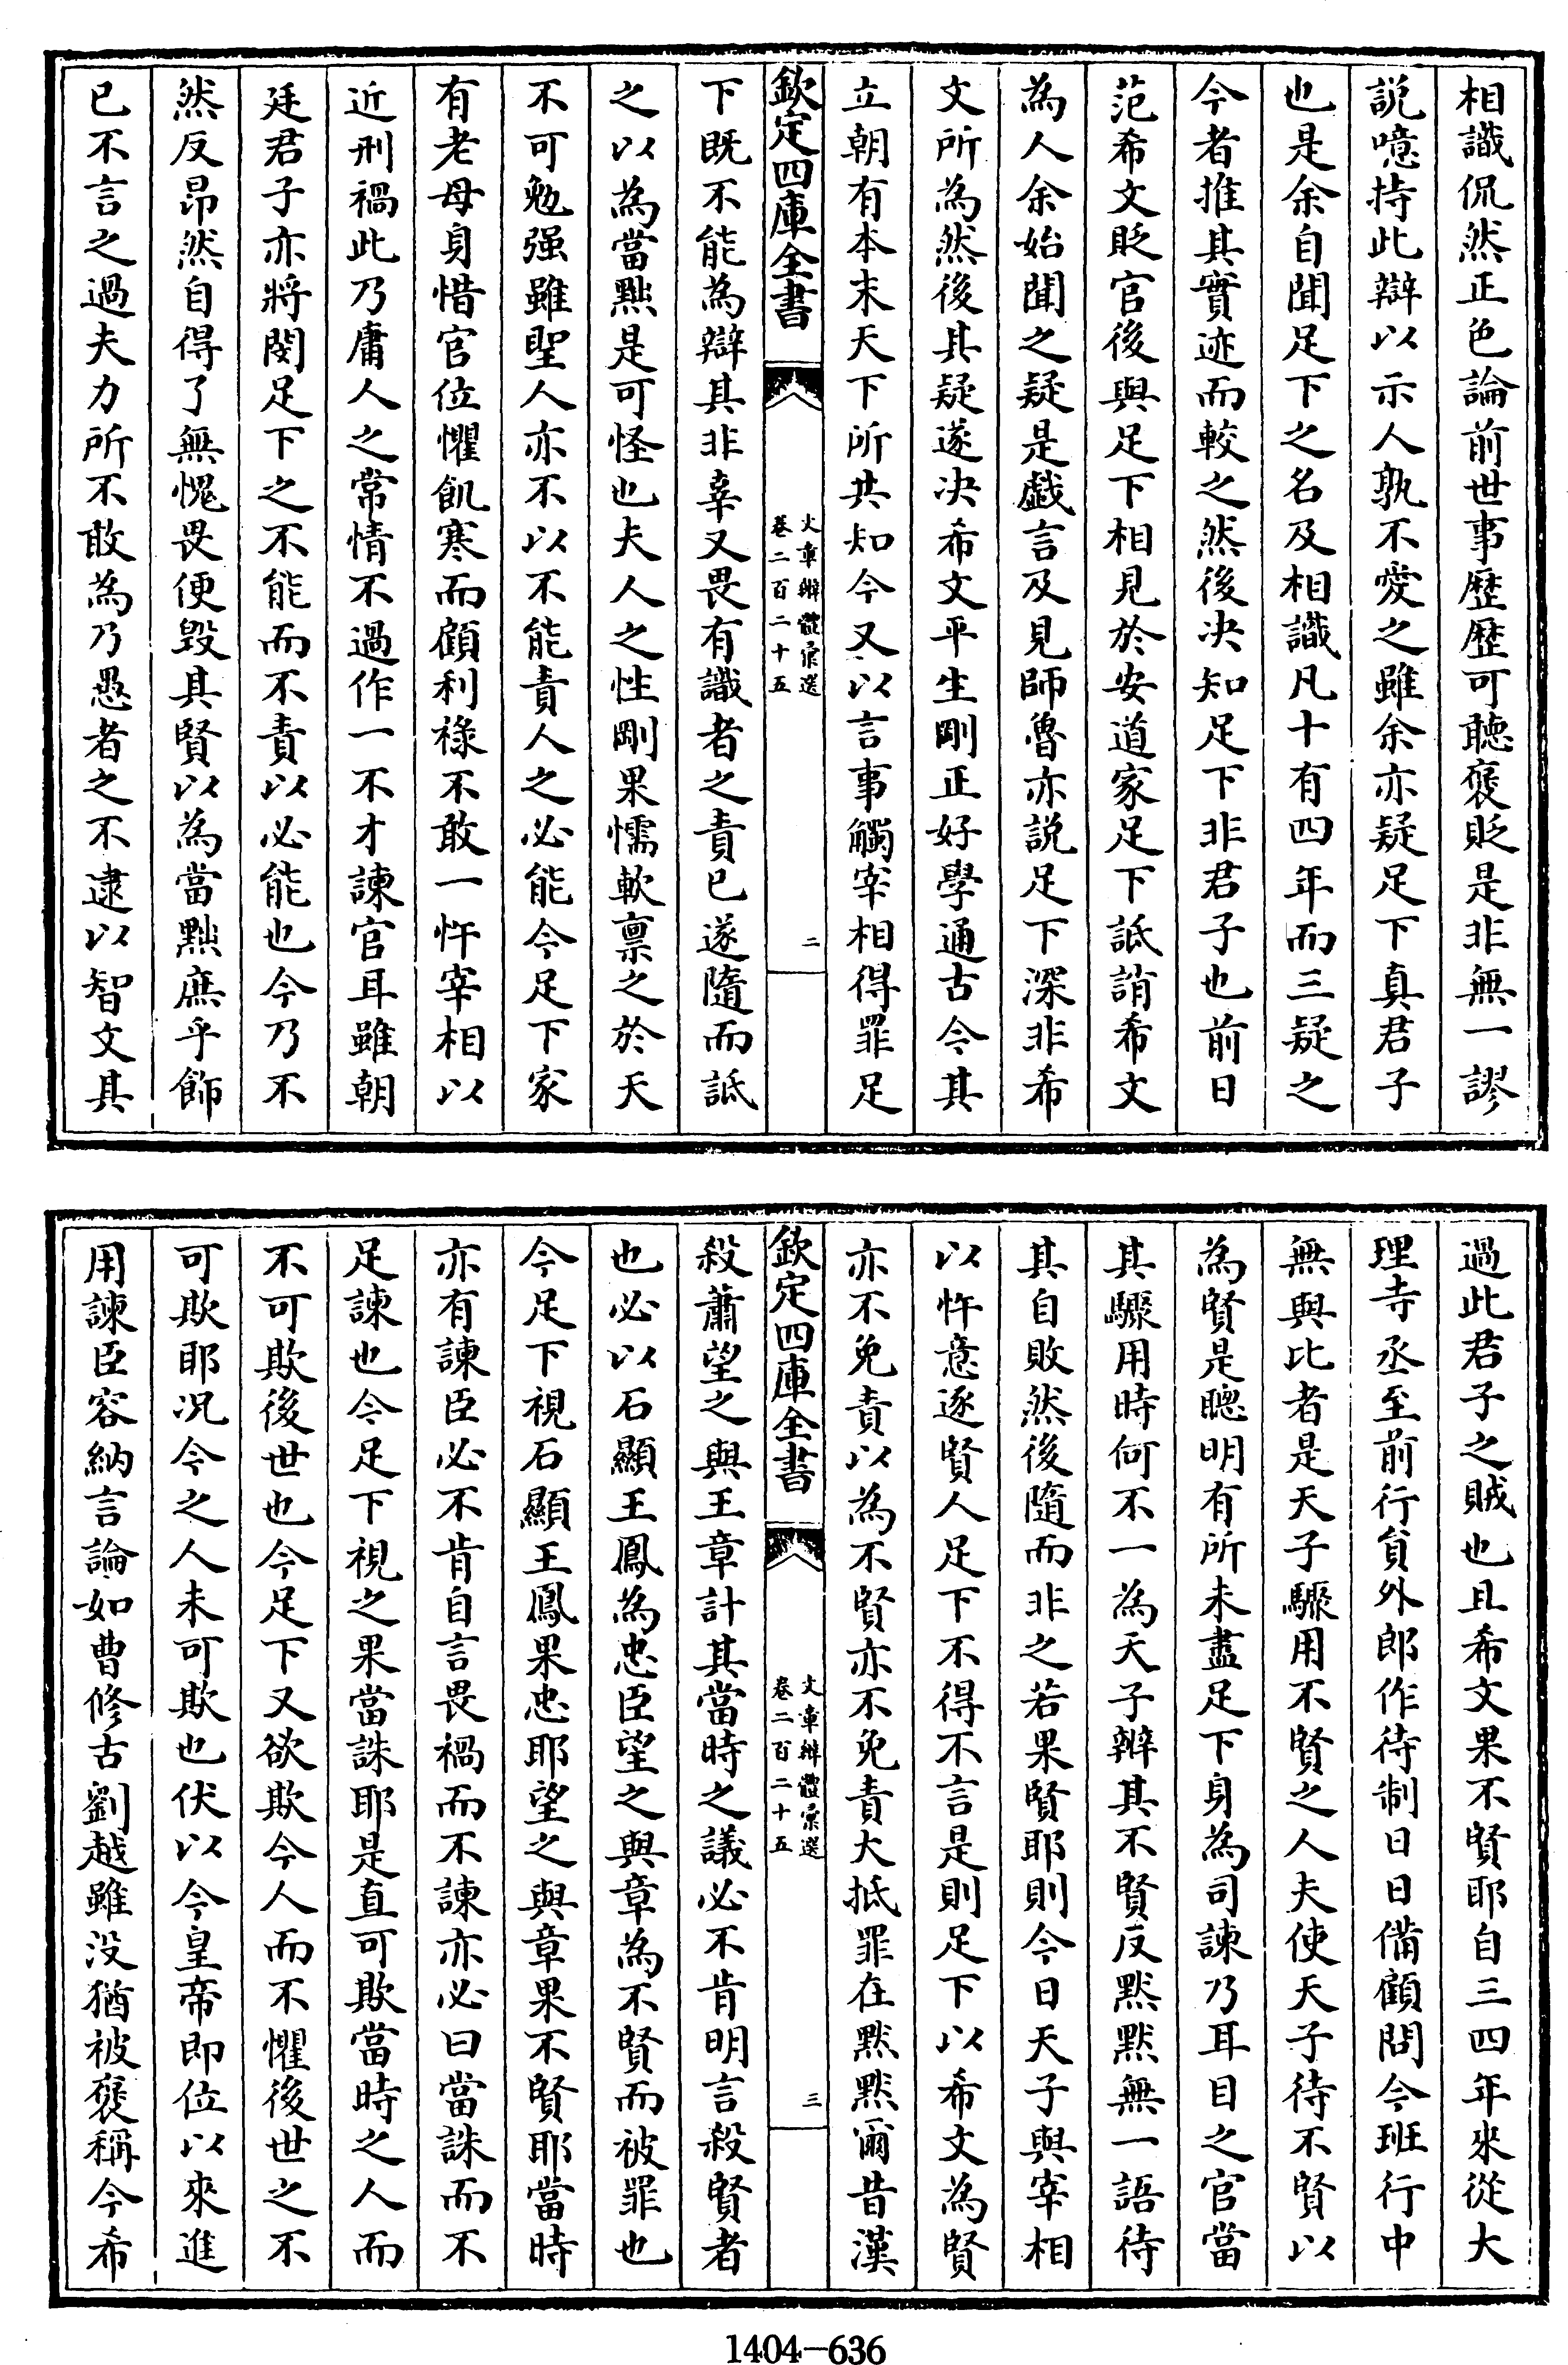 相識侃然正色論前世事歴歴可聽褒貶是非無一謬
説噫持此辯以示人孰不愛之雖余亦疑足下真君子
也是余自聞足下之名及相識凡十有四年而三疑之
今者推其實迹而較之然後决知足下非君子也前日
范希文貶官後與足下相見於安道家足下詆誚希文
為人余始聞之疑是戯言及見師魯亦説足下深非希
文所為然後其疑遂决希文平生剛正好學通古今其
立朝有本末天下所共知今又以言事觸宰相得罪足
欽定四庫全書
文章辨體彚選
卷二百二十五
二
下既不能為辯其非辜又畏有識者之責已遂隨而詆
之以為當黜是可怪也夫人之性剛果懦軟禀之於天
不可勉强雖聖人亦不以不能責人之必能今足下家
有老母身惜官位懼飢寒而顧利祿不敢一忤宰相以
近刑禍此乃庸人之常情不過作一不才諫官耳雖朝
廷君子亦將閔足下之不能而不責以必能也今乃不
然反昂然自得了無愧畏便毀其賢以為當黜庶乎飾
已不言之過夫力所不敢為乃愚者之不逮以智文其
過此君子之賊也且希文果不賢耶自三四年來從大
理寺丞至前行貟外郎作待制日日備顧問今班行中
無與比者是天子驟用不賢之人夫使天子待不賢以
為賢是聰明有所未盡足下身為司諫乃耳目之官當
其驟用時何不一為天子辨其不賢反黙黙無一語待
其自敗然後隨而非之若果賢耶則今日天子與宰相
以忤意逐賢人足下不得不言是則足下以希文為賢
亦不免責以為不賢亦不免責大抵罪在黙黙爾昔漢
欽定四庫全書
文章辨體彚選
卷二百二十五
三
殺蕭望之與王章計其當時之議必不肯明言殺賢者
也必以石顯王鳳為忠臣望之與章為不賢而被罪也
今足下視石顯王鳳果忠耶望之與章果不賢耶當時
亦有諫臣必不肯自言畏禍而不諫亦必曰當誅而不
足諫也今足下視之果當誅耶是直可欺當時之人而
不可欺後世也今足下又欲欺今人而不懼後世之不
可欺耶况今之人未可欺也伏以今皇帝即位以來進
用諫臣容納言論如曹修古劉越雖没猶被褒稱今希
1404-636